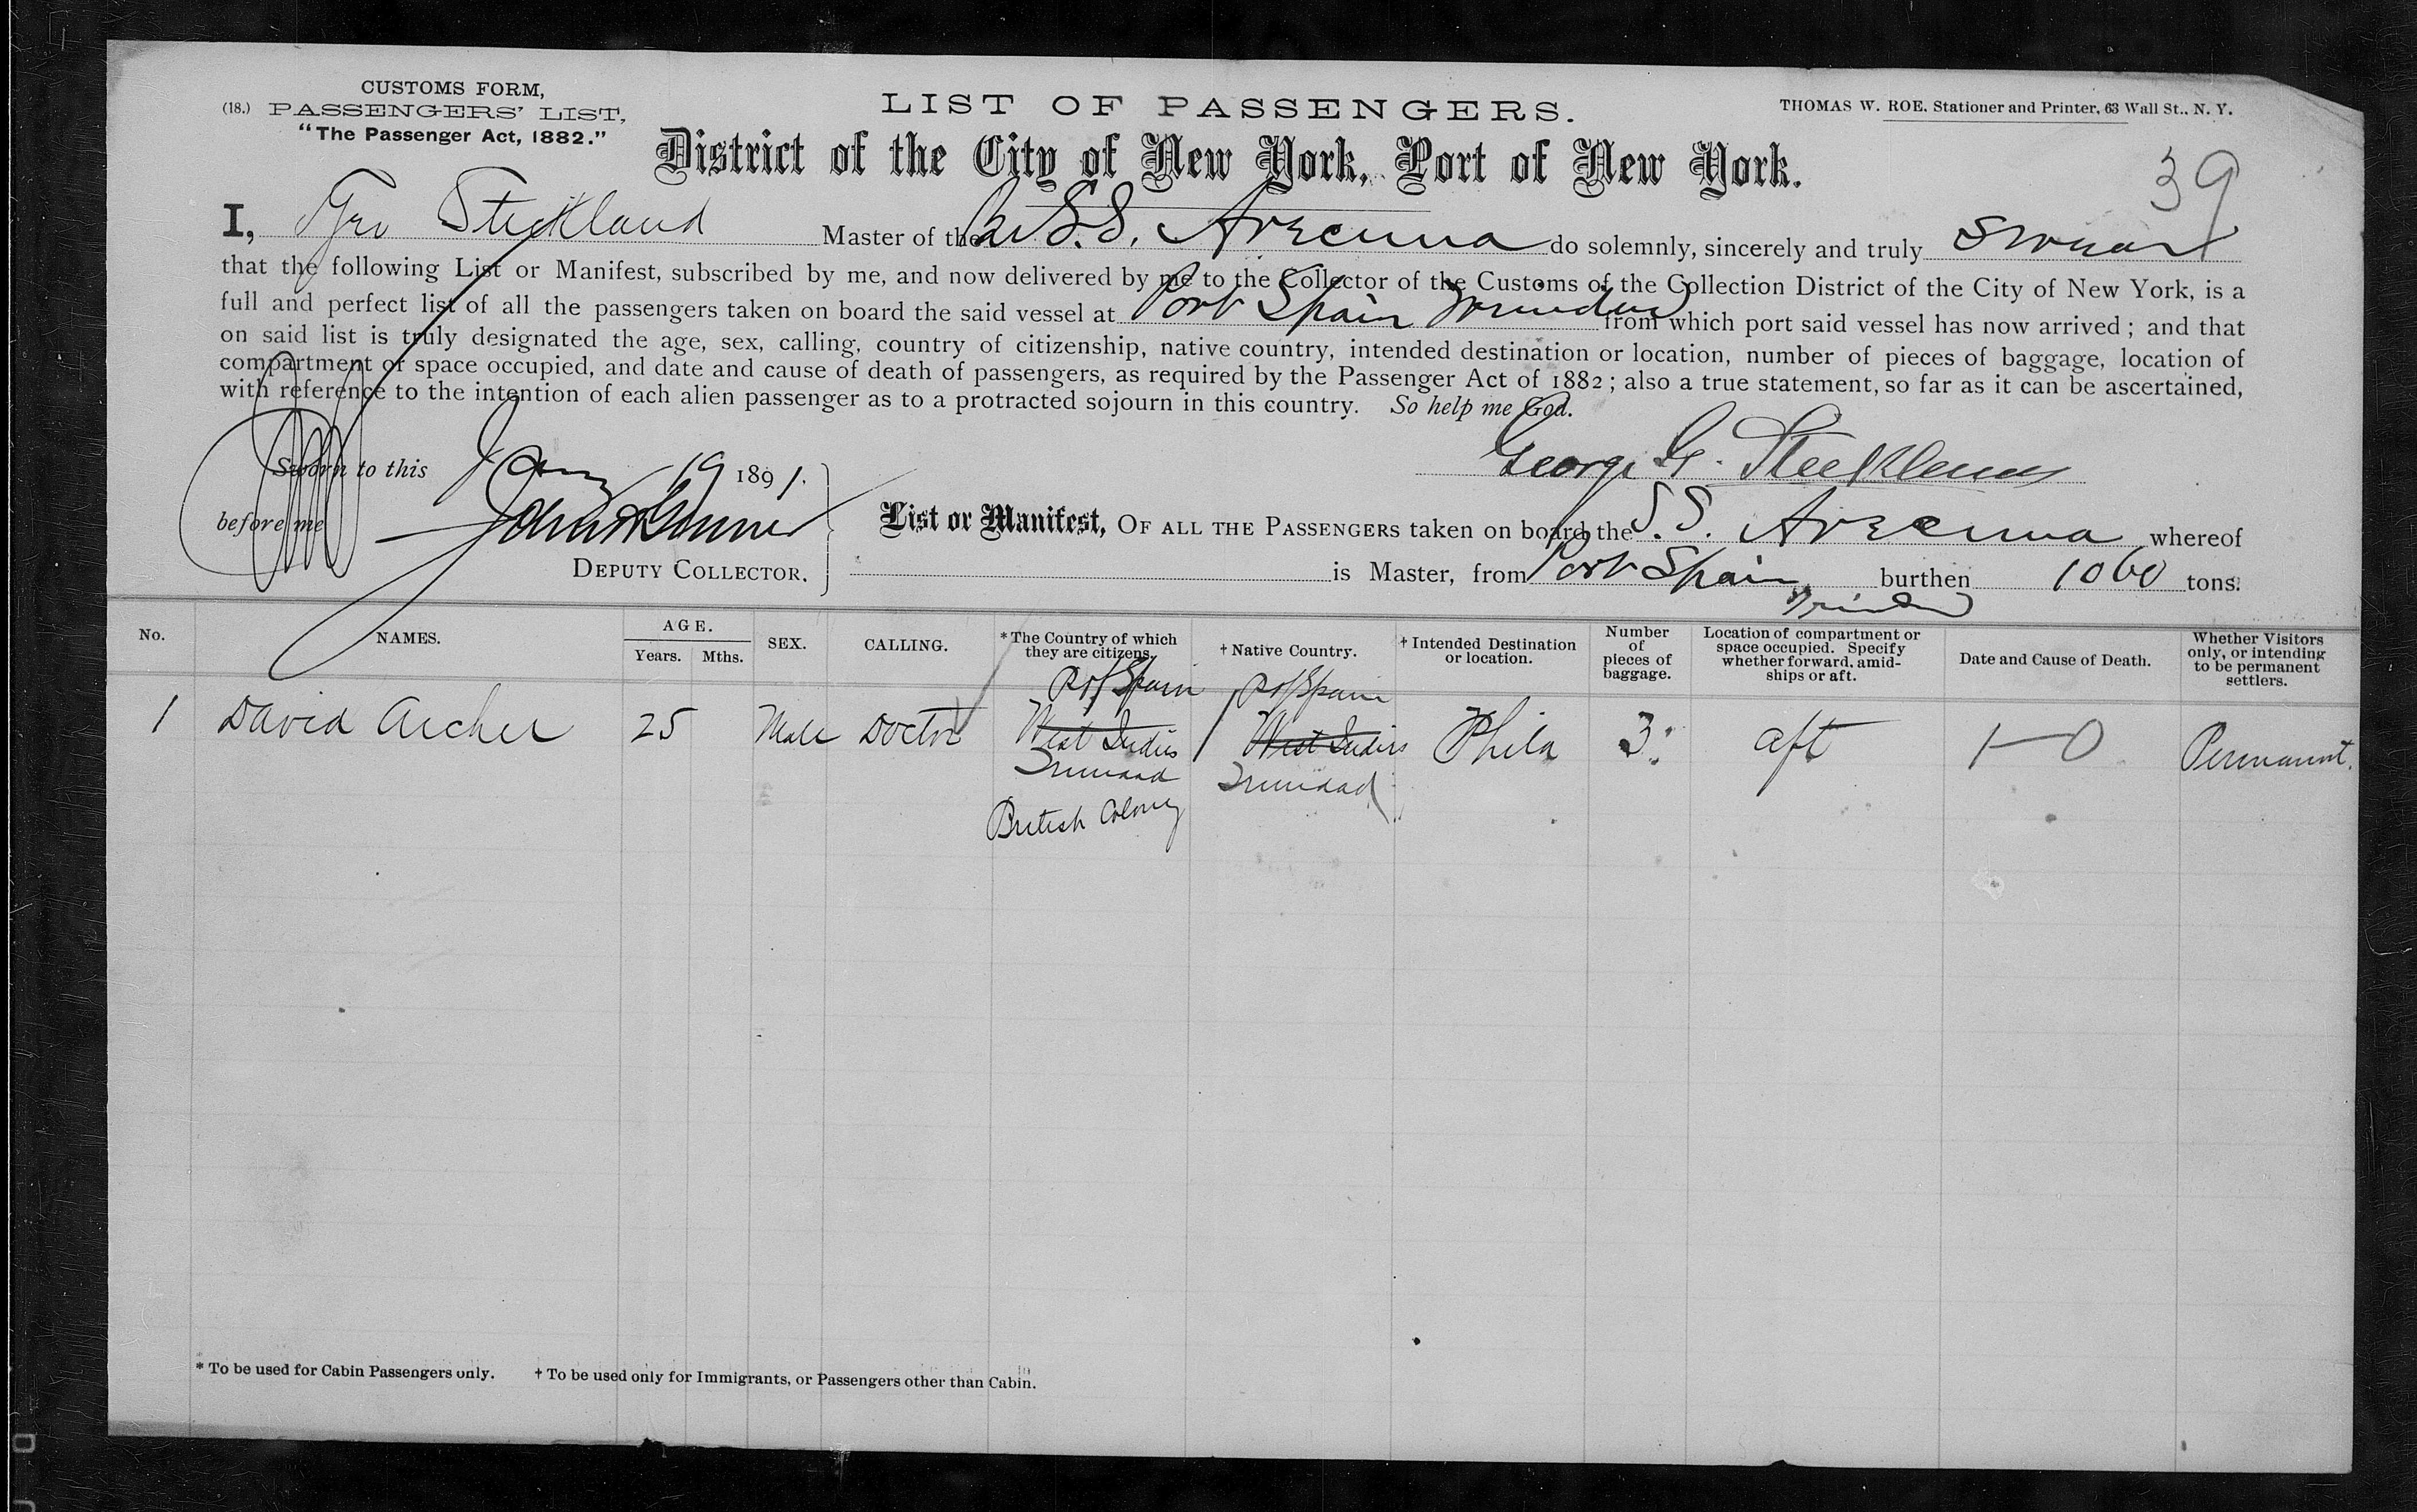 CUSTOMS FORM,
(18.) PASSENGERS' LIST,
"The Passenger Act, 1882."
LIST OF PASSENGERS.
THOMAS W. ROE. Stationer and Printer, 63 Wall St., N. Y.
District of the City of New York, Port of New York.
39
I, Geo Stickland Master of the Br S.S. Avecenna do solemnly, sincerely and truly swear
that the following List or Manifest, subscribed by me, and now delivered by me to the Collector of the Customs of the Collection District of the City of New York, is a
full and perfect list of all the passengers taken on board the said vessel at Port Spain Trinidad from which port said vessel has now arrived; and that
on said list is truly designated the age, sex, calling, country of citizenship, native country, intended destination or location, number of pieces of baggage, location of
compartment or space occupied, and date and cause of death of passengers, as required by the Passenger Act of 1882; also a true statement, so far as it can be ascertained,
with reference to the intention of each alien passenger as to a protracted sojourn in this country. So help me God.
George G. Stickland
Sworn to this Jany 19 1891.
before me
DEPUTY COLLECTOR.
List or Manifest, OF ALL THE PASSENGERS taken on board the S.S. Avecenna whereof
is Master, from Port Spain, burthen 1060 tons.
Trinidad
No. NAMES. AGE. Years. Mths. SEX. CALLING. *The Country of which they are citizens. †Native Country. †Intended Destination or location. Number of pieces of baggage. Location of compartment or space occupied. Specify whether forward, amid-ships or aft. Date and Cause of Death. Whether Visitors only, or intending to be permanent settlers.
P of Spain P of Spain
1 David Archer 25 Male Doctor West Indies West Indies Phila 3 aft 1—0 Permanent.
Trinidad Trinidad
British Colony
* To be used for Cabin Passengers only. † To be used only for Immigrants, or Passengers other than Cabin.